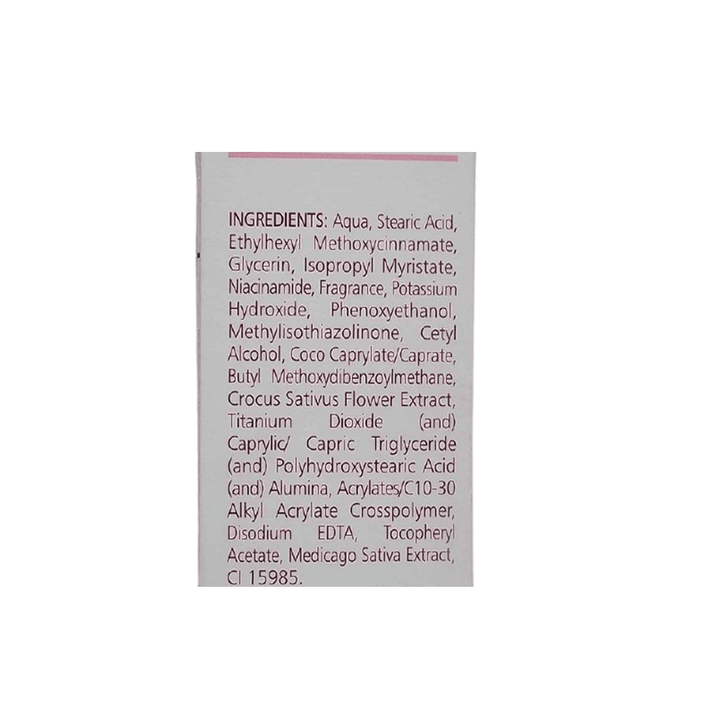 INGREDIENTS: Aqua, Stearic Acid,
Ethylhexyl Methoxycinnamate,
Glycerin, Isopropyl Myristate,
Niacinamide, Fragrance, Potassium
Hydroxide, Phenoxyethanol,
Methylisothiazolinone, Cetyl
Alcohol, Coco Caprylate/Caprate,
Butyl Methoxydibenzoylmethane,
Crocus Sativus Flower Extract,
Titanium Dioxide (and)
Caprylic/ Capric Triglyceride
(and) Polyhydroxystearic Acid
(and) Alumina, Acrylates/C10-30
Alkyl Acrylate Crosspolymer,
Disodium EDTA, Tocopheryl
Acetate, Medicago Sativa Extract,
CI 15985.